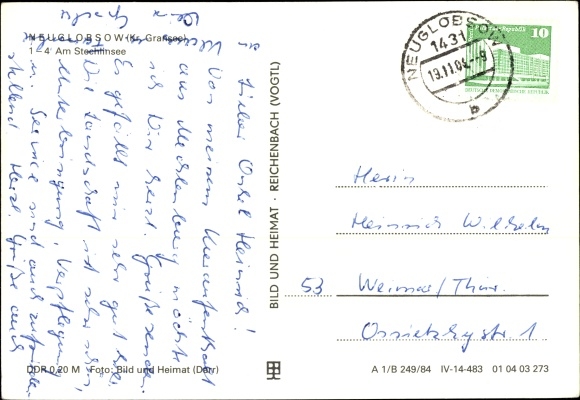 NEUGLOBSOW (Kr. Gransee)
1–4 Am Stechlinsee
Lieber Onkel Heinrich!
Von meinem Kuraufenthalt
aus Mecklenburg möchte
ich Dir herzl. Grüße senden.
Es gefällt mir sehr gut hier.
Die Landschaft ist sehr schön,
Unterbringung, Verpflegung
Service sind auch zufrieden-
stellend. Herzl. Grüße auch
DDR 0,20 M Foto: Bild und Heimat (Dörr)
BILD UND HEIMAT · REICHENBACH (VOGTL)
NEUGLOBSOW
1431
19.11.84.-9
b
10
DEUTSCHE DEMOKRATISCHE REPUBLIK
Herrn
Heinrich Wilhelm
53 Weimar/Thür.
Ossietzkystr. 1
A 1/B 249/84 IV-14-483 01 04 03 273